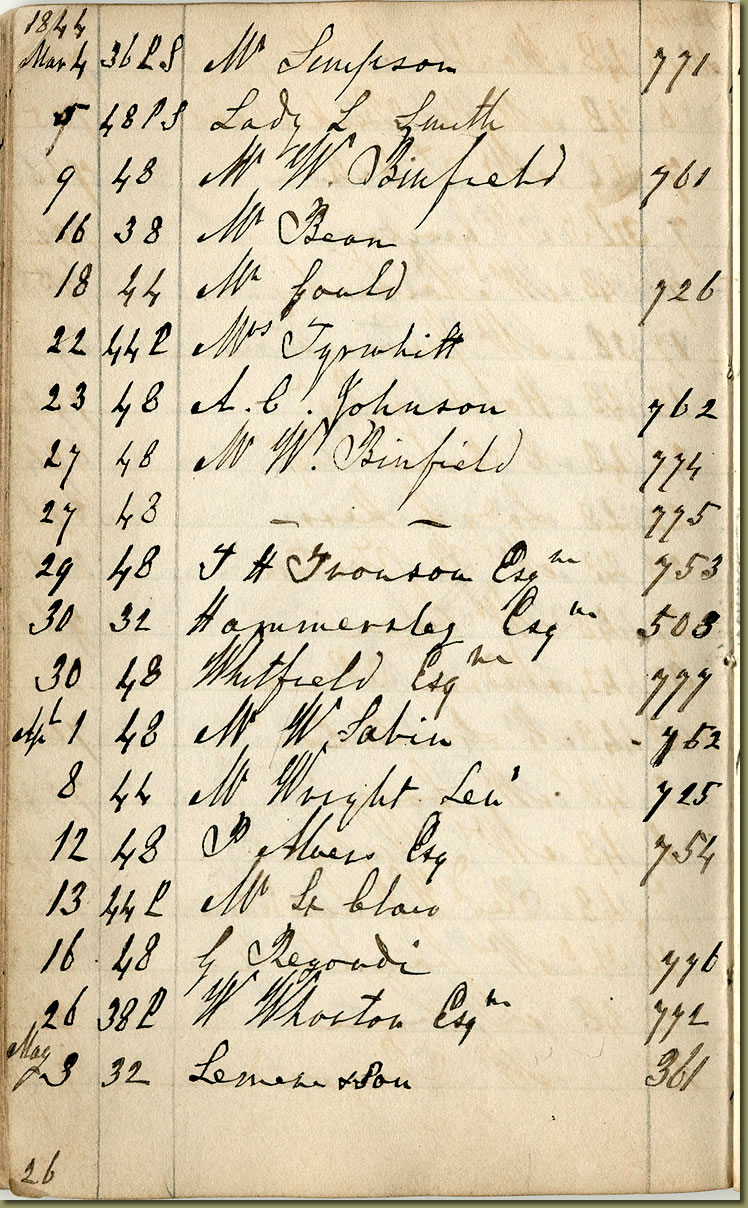 1844
Mar 4 36 P S Mr Simpson 771
5 48 P S Lady L Smith
9 48 Mr W. Binfield 761
16 38 Mr Bean
18 44 Mr Gould 726
22 44 P Mrs Tyrwhitt
23 48 A. C. Johnson 762
27 48 Mr W. Binfield 774
27 48 – – 775
29 48 T H Tronson Esqre 753
30 32 Hammersley Esqre 503
30 48 Whitfield Esqre 777
Apl 1 48 Mr W Sabin 752
8 44 Mr Wright Senr 725
12 48 P Esq 754
13 44 P Mr St Clair
16 48 G Regondi 776
26 38 P W Whoston Esqre 772
May 3 32 & Son 361
26